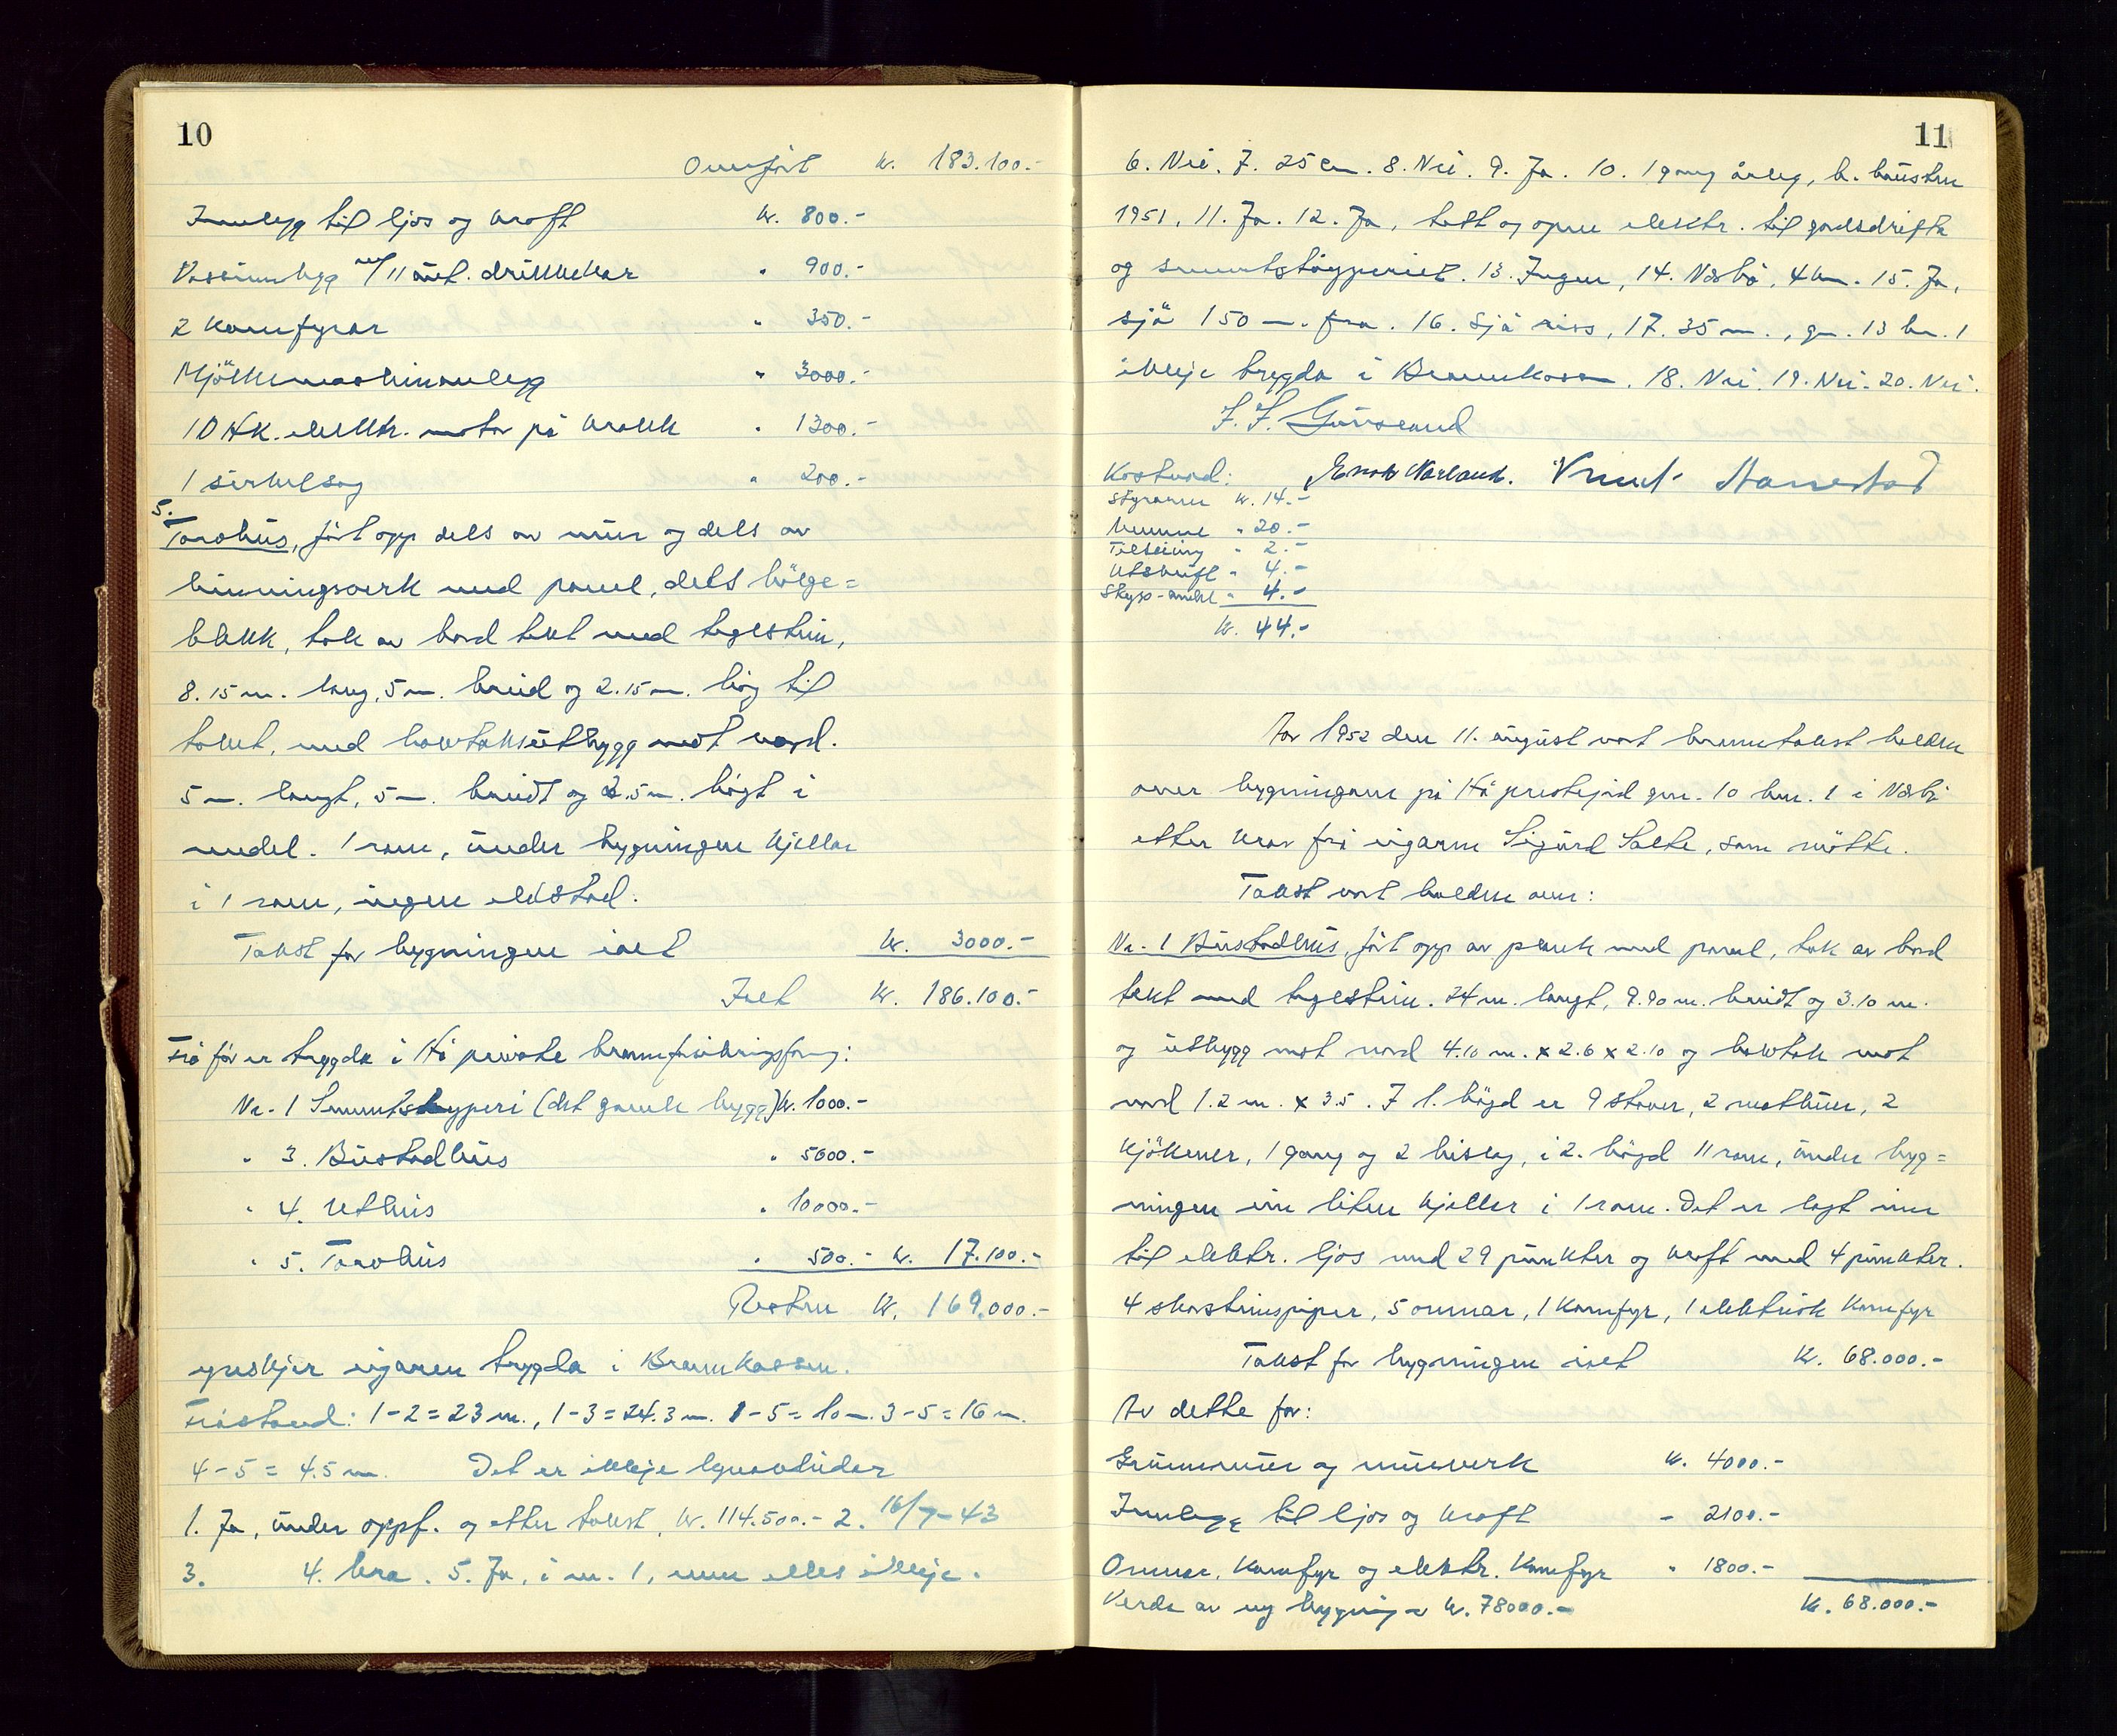 10
Omført kr. 183.100.-
Innlegg til ljos og kraft kr. 800.-
Vassinnlegg m/11 aut. drikkekar " 900.-
2 komfyrar " 350.-
Mjölkemaskinanlegg " 3000.-
10 HK. elektr. motor på krakk " 1300.-
1 sirkelsag " 200.-
5.
Torvhus, fört opp dels av mur og dels av
binningsverk med panel, dels bölge=
blekk, tak av bord tekt med teglstein,
8.15 m. lang, 5 m. breid og 2.15 m. høg til
taket, med halvtaksutbygg mot nord.
5 m. langt, 5 m. breidt og 2.5 m. högt i
medel. 1 rom, under bygningen kjellar
i 1 rom, ingen eldstad.
Takst for bygningen ialt kr. 3000.-
Ialt kr. 186.100.-
Frå för er trygda i Hå private brannforsikringsforeg:
Nr. 1 Sementstøyperi (det gamle bygg) kr. 1000.-
" 3. Bustadhus " 5600.-
" 4. Uthus " 10000.-
" 5. Torvhus " 500.- kr. 17.100.-
Resten kr. 169.000.-
ynskjer eigaren trygda i Brannkassen.
Fråstand: 1-2=23 m., 1-3=24.3 m. 1-5=10 m. 3-5=16 m.
4-5=4.5 m. Det er ikkje lynavleidar
1. Ja, under oppf. og etter takst, kr. 114.500.- 2. 16/7-43
3. 4. bra. 5. Ja, i nr. 1, men elles ikkje.
11
6. Nei. 7. 25 cm. 8. Nei. 9. Ja. 10. 1 gang årleg, h. hausten
1951, 11. Ja. 12. Ja, tett og open elektr. til gardsdrifta
og sementstøyperiet. 13. Ingen, 14. Nærbø, 4 km. 15. Ja,
sjå 150 m. fra. 16. Sjå riss, 17. 35 m., gn. 13 bn. 1
ikkje trygda i Brannkassen. 18. Nei. 19. Nei. 20. Nei.
Kostnad:
Knut Hanestad
Styraren kr. 14.-
Menne " 20.-
Tilseiing " 2.-
Utskrift " 4.-
Skyss-andel " 4.-
kr. 44.-
År 1952 den 11. august vart branntakst halden
over bygningane på Hå prestejord gnr. 10 bnr. 1 i Nærbø
etter krav frå eigaren Sigurd Salte, som mötte.
Takst vart halden over:
Nr. 1 Bustadhus, fört opp av plank med panel, tak av bord
tekt med teglstein. 24 m. langt, 9.90 m. breidt og 3.10 m.
og utbygg mot nord 4.10 m. x 2.6 x 2.10 og halvtak mot
nord 1.2 m. x 3.5. I 1. högd er 9 stover, 2 matbuer, 2
kjökener, 1 gang og 2 bislag, i 2. högd 11 rom, under byg=
ningen ein liten kjeller i 1 rom. Det er lagt inn
til elektr. ljos med 29 punkter og kraft med 4 punkter.
4 skorsteinspiper, 5 omnar, 1 komfyr, 1 elektrisk komfyr
Takst for bygningen ialt kr. 68.000.-
Av dette for:
Grunnmur og murverk kr. 4000.-
Innlegg til ljos og kraft - 2100.-
Omnar, komfyr og elektr. komfyr " 1800.-
Verde av ny bygning kr. 78000.- kr. 68.000.-